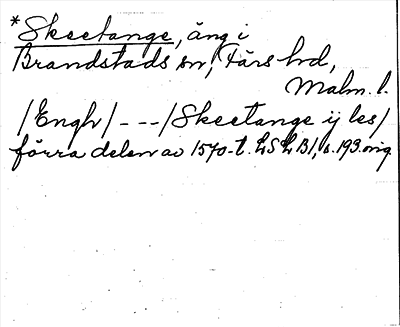 *Skeetange, äng i
Brandstads sn, Färs hd,
Malm. l.
/Engh/ - - - /Skeetange ij les/
förra delen av 1570-t. LSLB1, s. 193. orig.